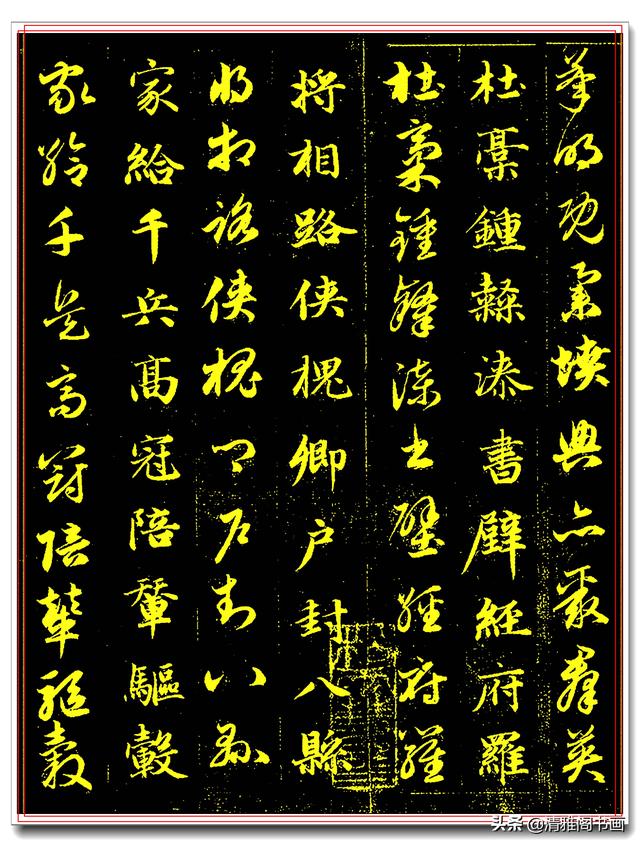 承明既集墳典亦聚群英
杜槀鍾隸漆書壁經府羅
杜槀鍾隸漆書壁經府羅
將相路俠槐卿户封八縣
將相路俠槐卿户封八縣
家給千兵髙冠陪輦驅轂
家給千兵高冠陪輦驅轂
头条 @清雅阁书画